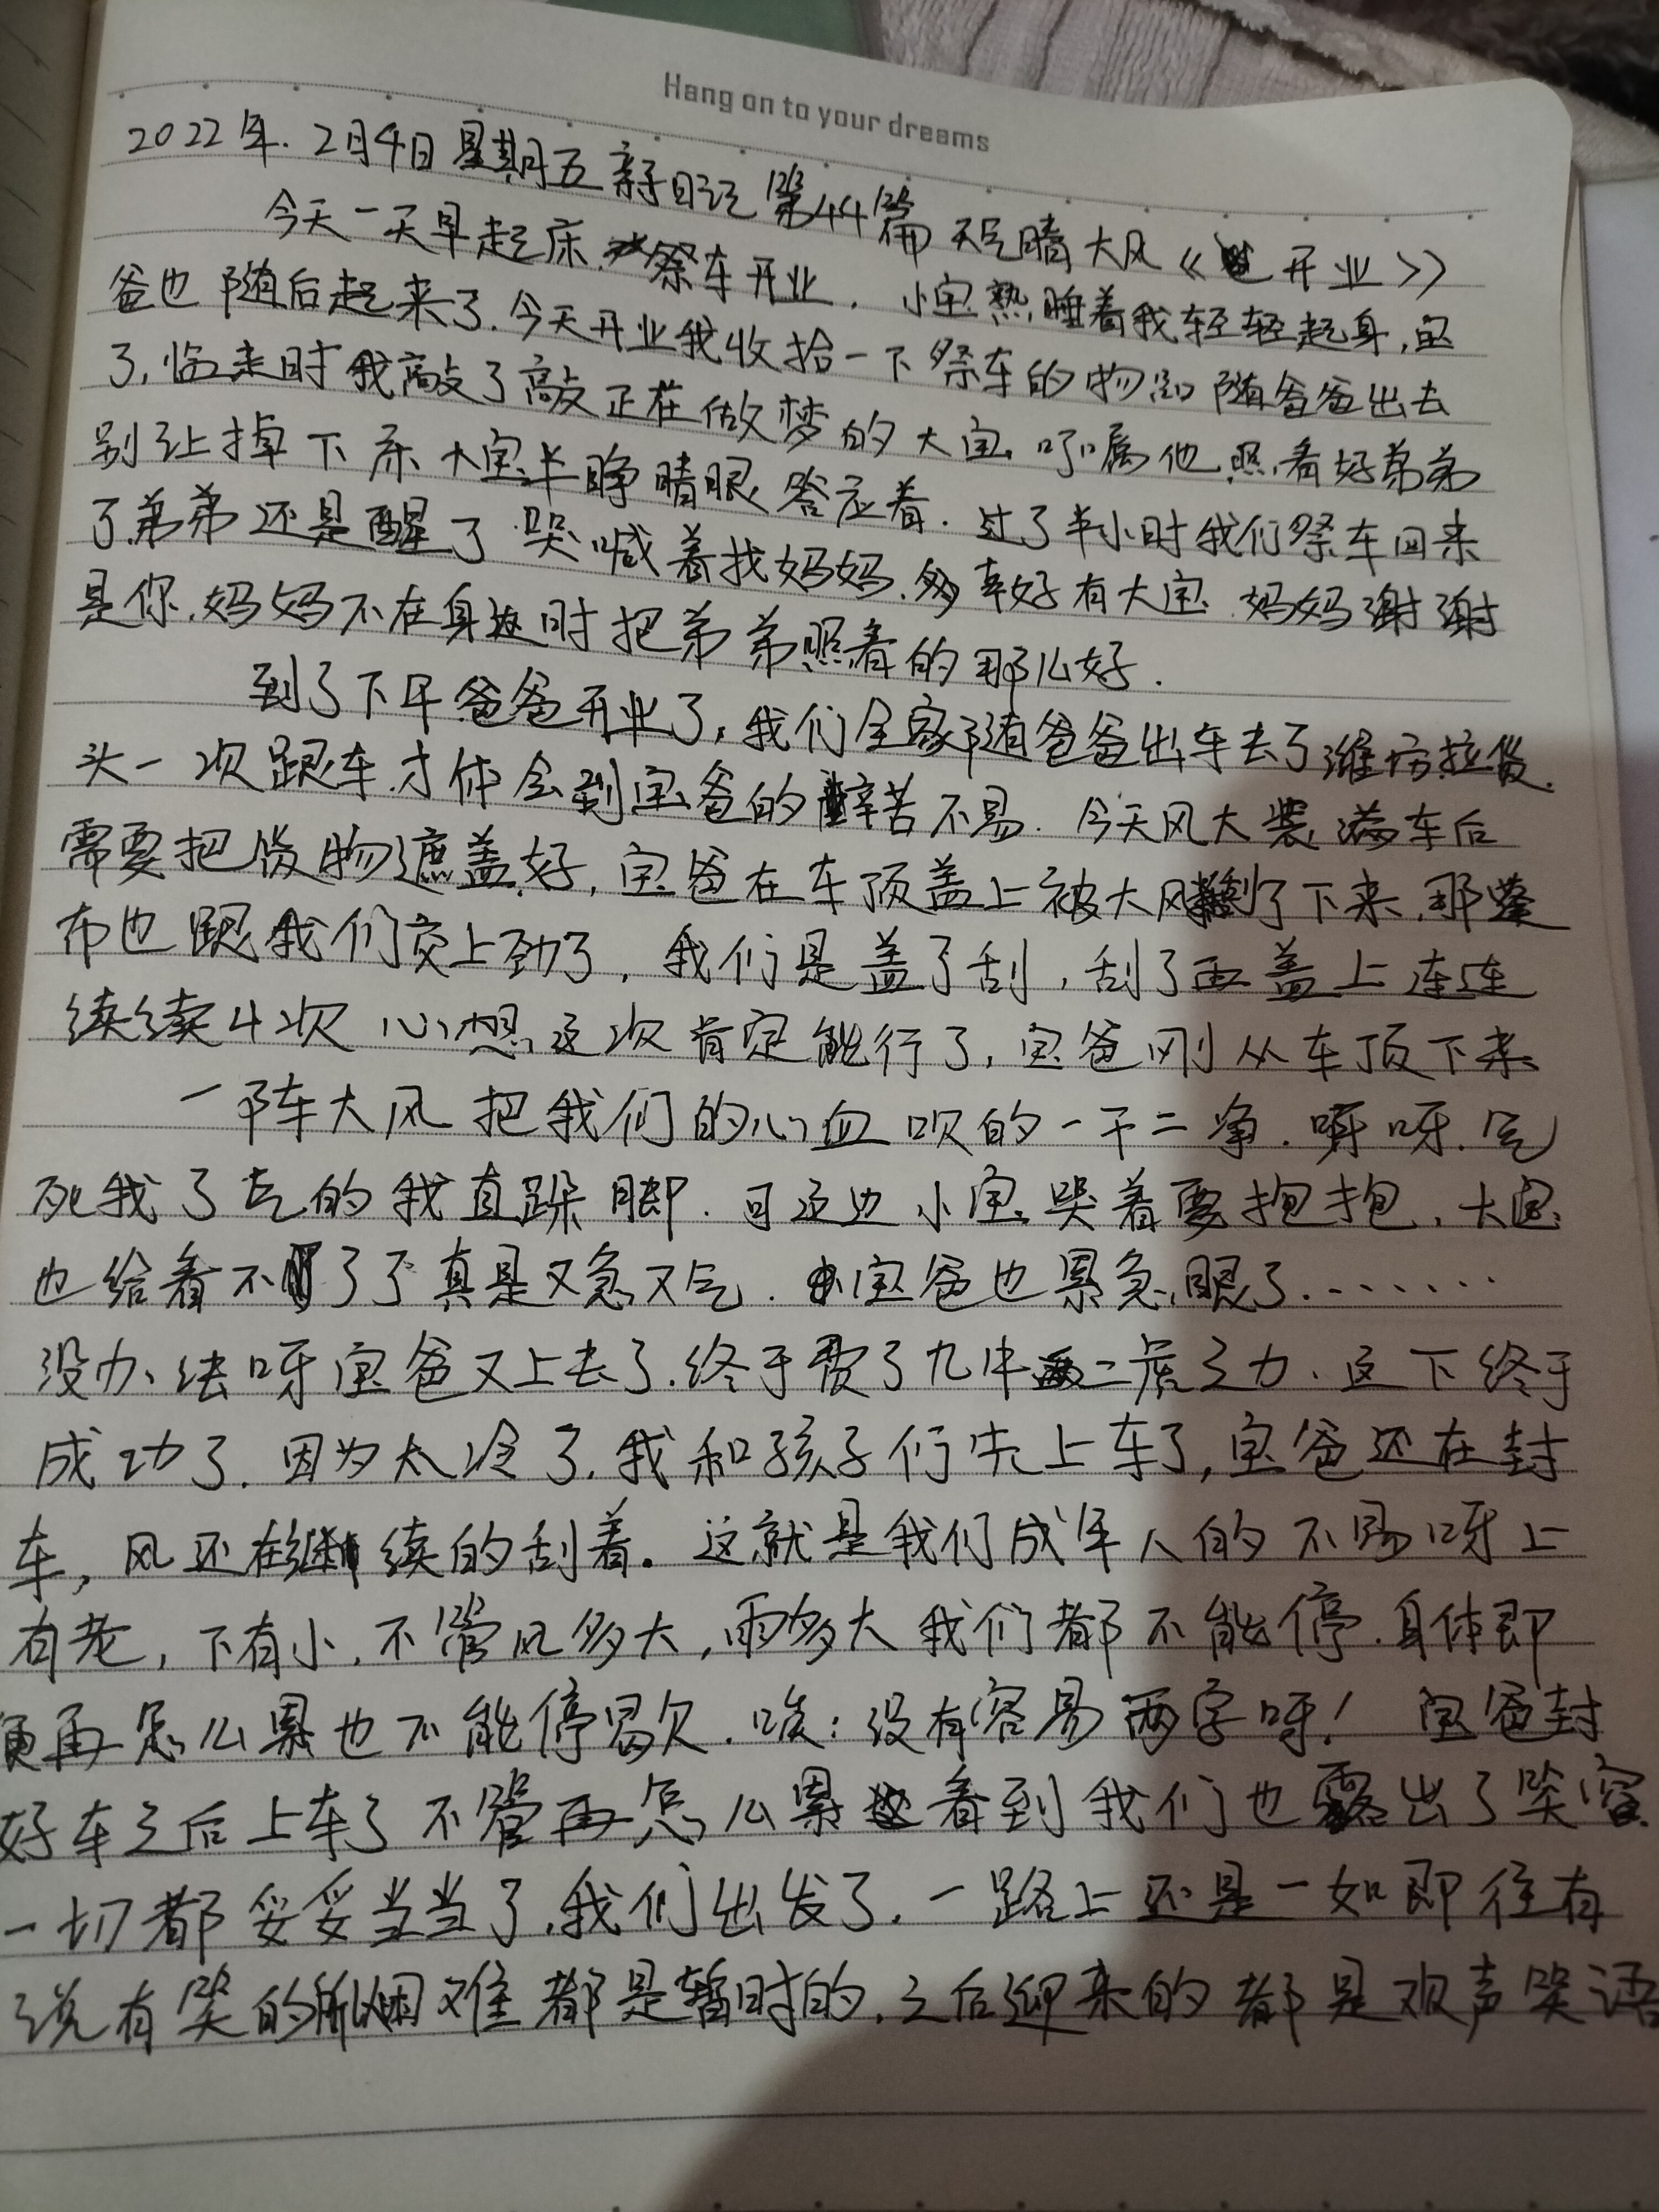 Hang on to your dreams
2022年.2月4日星期五亲子日记第44篇 天气晴大风《开业》
今天一天早起床祭车开业,小宝熟睡着我轻轻起身,宝
爸也随后起来了.今天开业我收拾一下祭车的物品随爸爸出去
了,临走时我敲了敲正在做梦的大宝,叮嘱他照看好弟弟
别让掉下床大宝半睁睛眼答应着.过了半小时我们祭车回来
了弟弟还是醒了哭喊着找妈妈.幸好有大宝妈妈谢谢
是你.妈妈不在身边时把弟弟照看的那么好.
到了下午爸爸开业了,我们全家随爸爸出车去了潍坊拉货.
头一次跟车才体会到宝爸的辛苦不易.今天风大装满车后
需要把货物遮盖好,宝爸在车顶盖上被大风刮了下来.那蓬
布也跟我们交上劲了,我们是盖了刮,刮了再盖上连连
续续4次心想这次肯定能行了,宝爸刚从车顶下来
一阵大风把我们的心血吹的一干二净.呀呀.气
死我了气的我直跺脚.可这边小宝哭着要抱抱,大宝
也给看不了了真是又急又气.宝爸也累急眼了.......
没办法呀宝爸又上去了.终于费了九牛二虎之力、这下终于
成功了.因为太冷了.我和孩子们先上车了,宝爸还在封
车,风还在继续的刮着。这就是我们成年人的不易呀上
有老,下有小,不管风多大,雨多大我们都不能停.身体即
便再怎么累也不能停歇.唉:没有容易两字呀!宝爸封
好车之后上车了不管再怎么累看到我们也露出了笑容.
一切都妥妥当当了.我们出发了.一路上还是一如即往有
说有笑的所以困难都是暂时的.之后迎来的都是欢声笑语